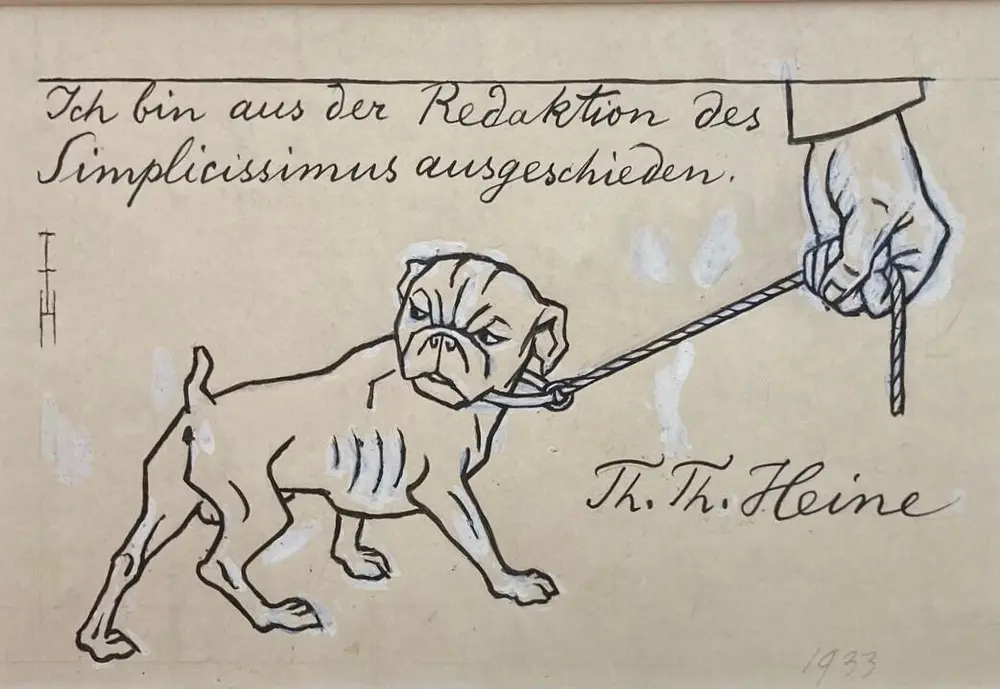 Ich bin aus der Redaktion des
Simplicissimus ausgeschieden.
TTH
Th. Th. Heine
1933